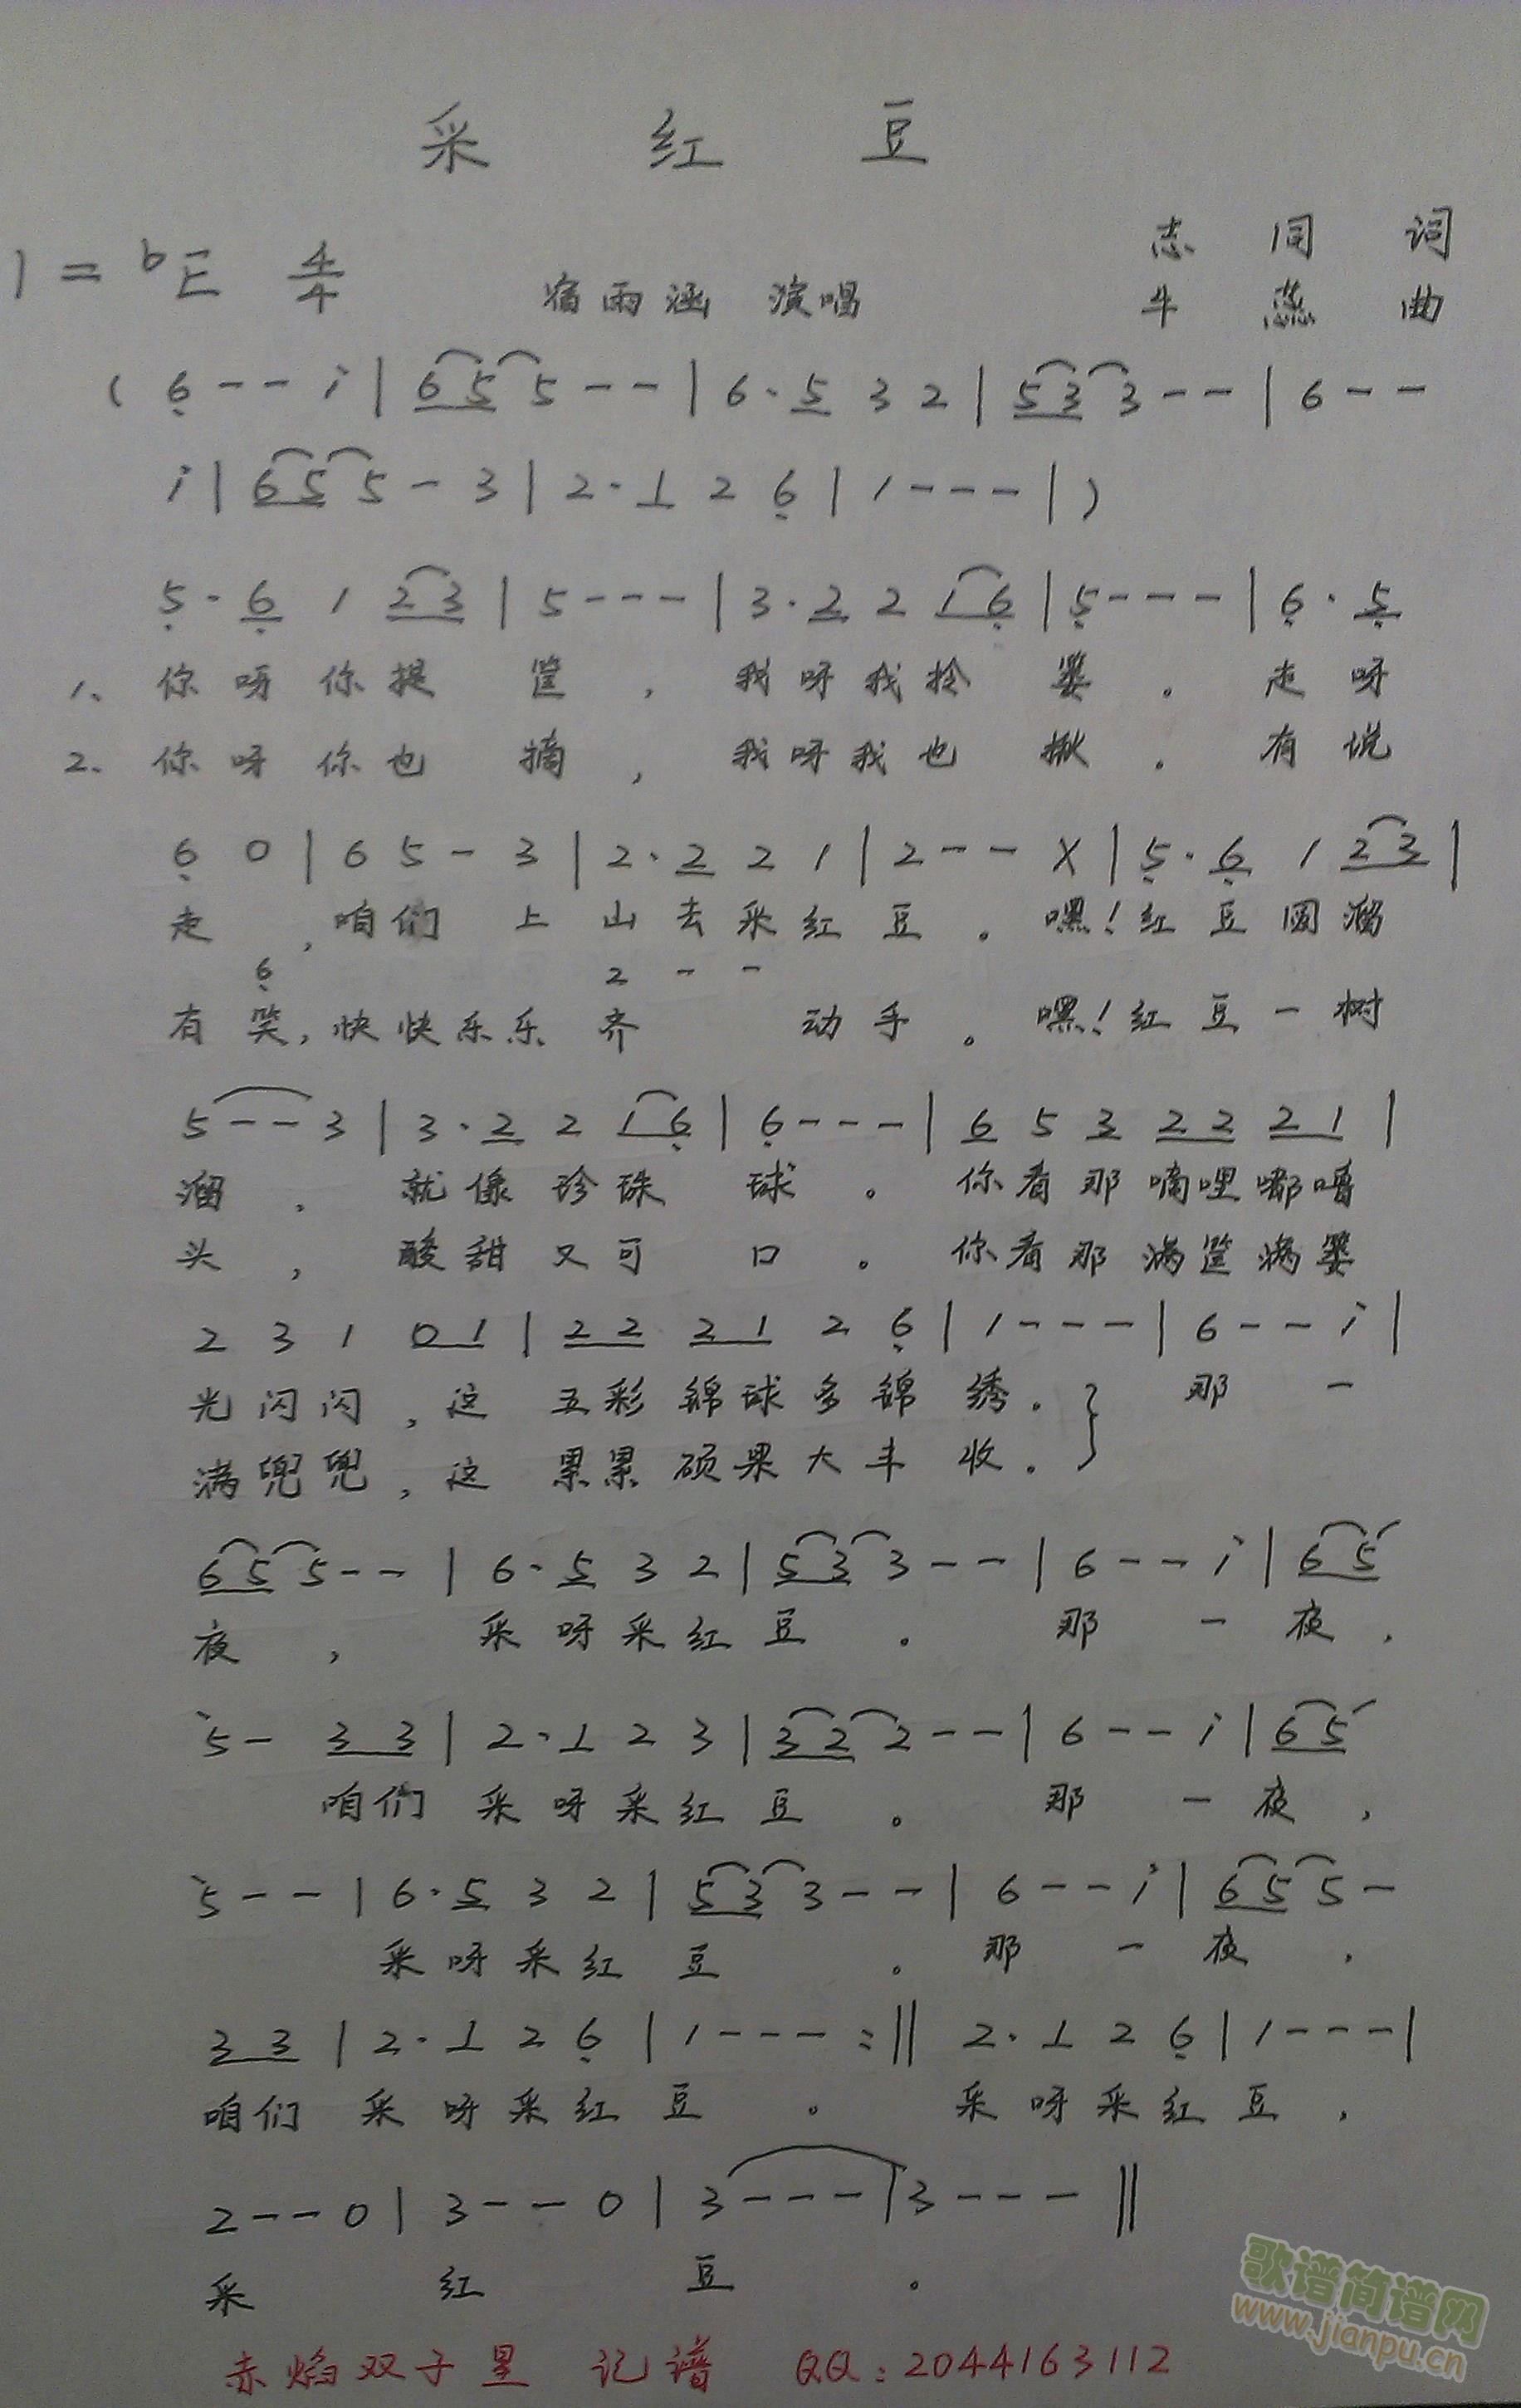 采 红 豆
志 同 词
1=bE 4/4 宿雨涵 演唱 牛 燕 曲
( 6 - - i | 6 5 5 - - | 6 · 5 3 2 | 5 3 3 - - | 6 - -
i | 6 5 5 - 3 | 2 · 1 2 6 | 1 - - - | )
5 · 6 1 2 3 | 5 - - - | 3 · 2 2 1 6 | 5 - - - | 6 · 5
1、你呀你提 筐 , 我呀我拎 篓 。 走呀
2、你呀你也 摘 , 我呀我也 揪 。 有说
6 0 | 6 5 - 3 | 2 · 2 2 1 | 2 - - X | 5 · 6 1 2 3 |
走 , 咱们 上 山去采红 豆 。 嘿!红豆圆溜
6 2 - -
有笑,快快乐乐 齐 动手 。 嘿!红豆一树
5 - - 3 | 3 · 2 2 1 6 | 6 - - - | 6 5 3 2 2 2 1 |
溜 , 就像珍珠 球 。 你看那嘀哩嘟噜
头 , 酸甜又可 口 。 你看那满筐满篓
2 3 1 0 1 | 2 2 2 1 2 6 | 1 - - - | 6 - - i |
光闪闪,这 五彩锦球多锦 绣。} 那 一
满兜兜,这 累累硕果大丰 收。
6 5 5 - - | 6 · 5 3 2 | 5 3 3 - - | 6 - - i | 6 5
夜 , 采呀采红 豆 。 那 一 夜 ,
5 - 3 3 | 2 · 1 2 3 | 3 2 2 - - | 6 - - i | 6 5
咱们 采呀采红 豆 。 那 一 夜 ,
5 - - | 6 · 5 3 2 | 5 3 3 - - | 6 - - i | 6 5 5 -
采呀采红 豆 。 那 一 夜 ,
3 3 | 2 · 1 2 6 | 1 - - - :‖ 2 · 1 2 6 | 1 - - - |
咱们 采呀采红 豆 。 采呀采红 豆 ,
2 - - 0 | 3 - - 0 | 3 - - - | 3 - - - ‖
采 红 豆 。
赤焰双子星 记谱 QQ:2044163112
歌谱简谱网
www.jianpu.cn